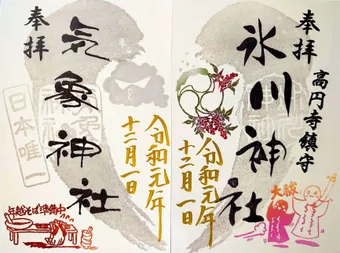 奉拝
高円寺鎮守
氷川神社
令和元年
十二月一日
奉拝
気象神社
日本唯一
令和元年
十二月一日
年越そば準備中